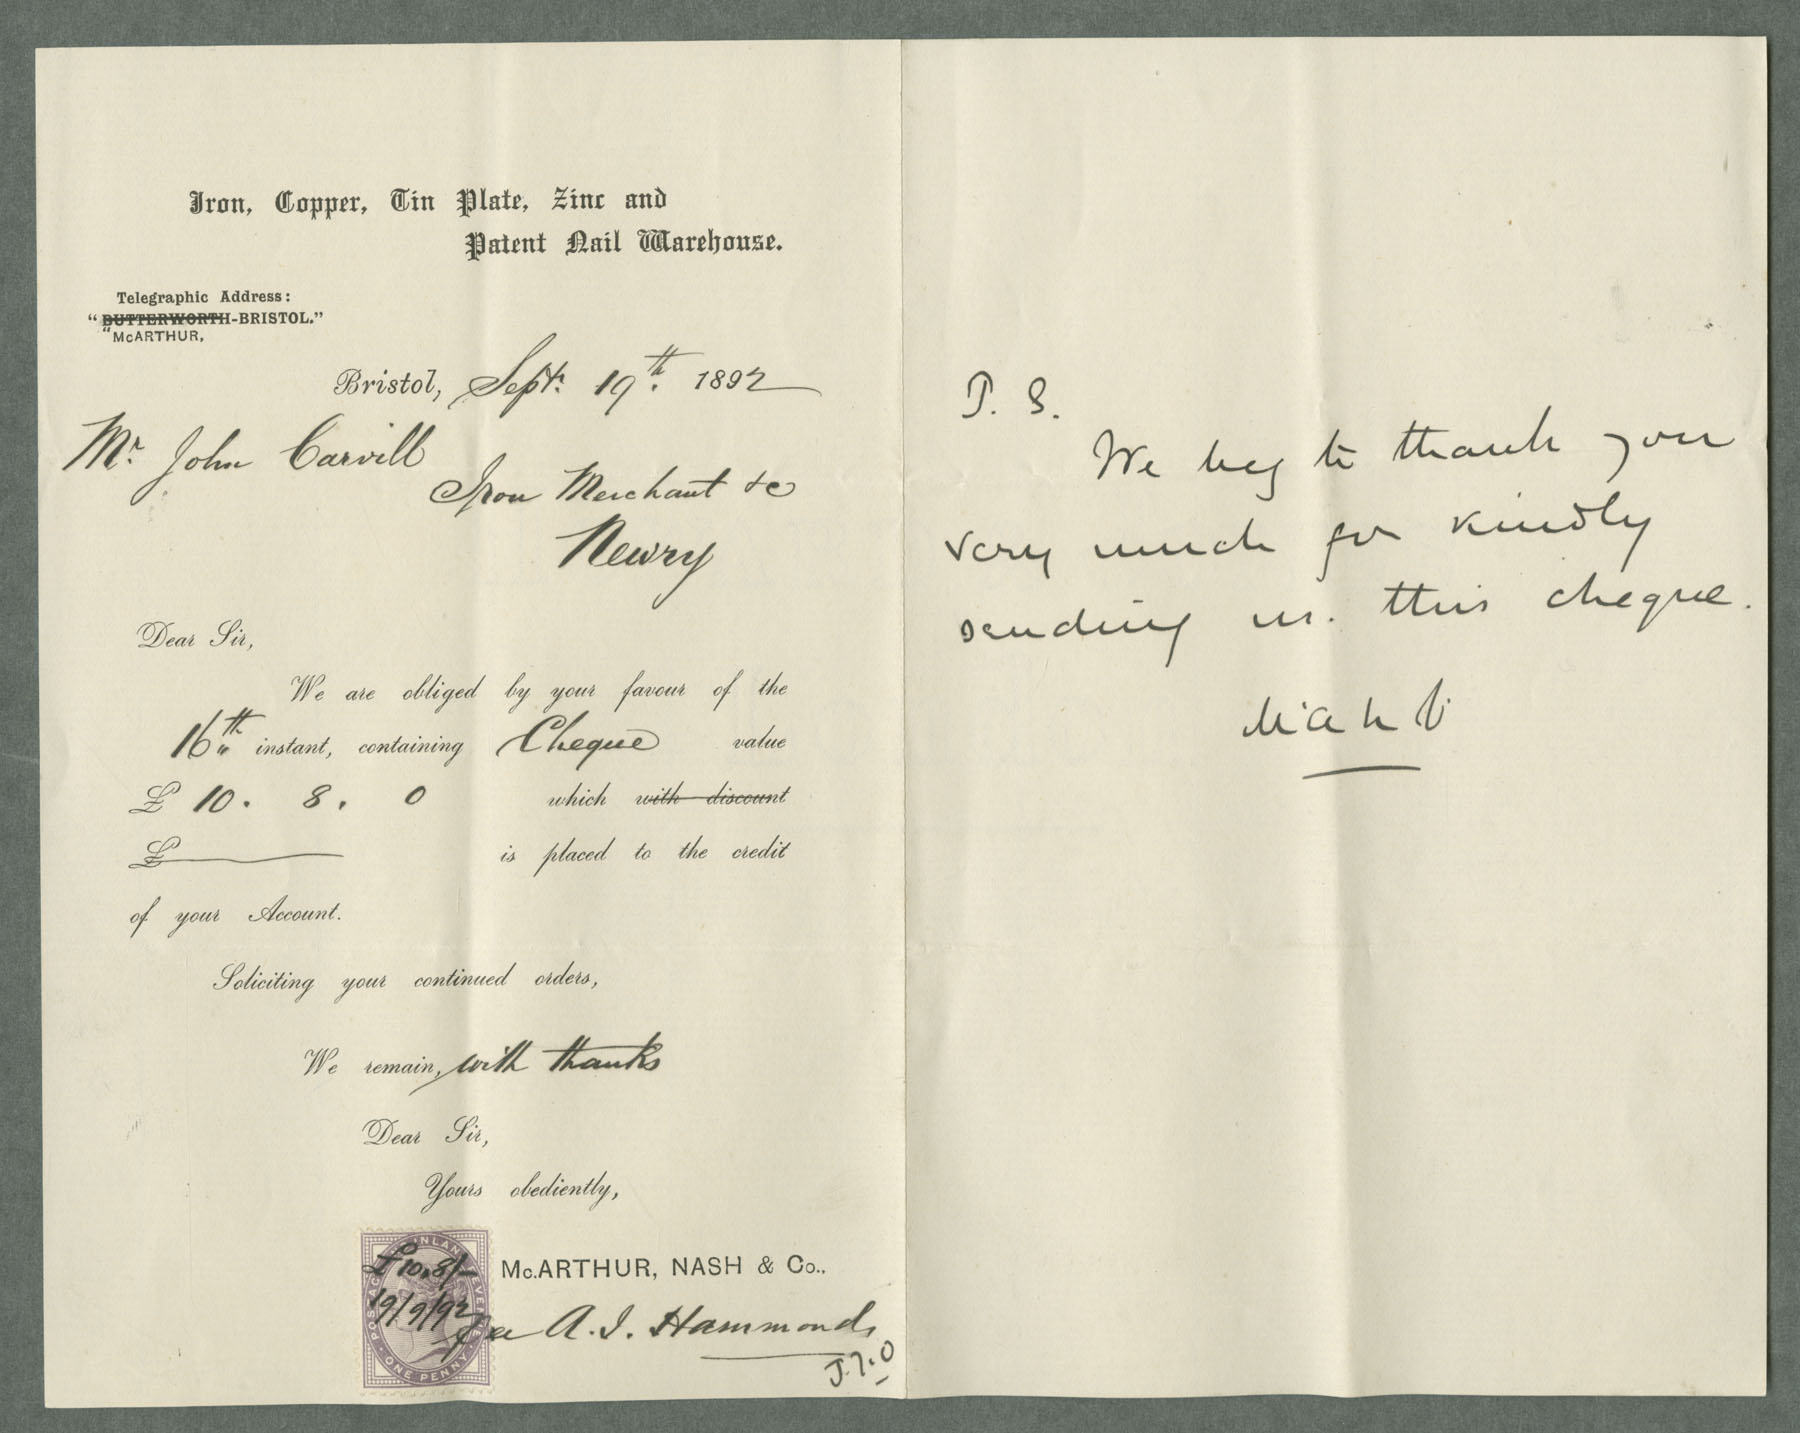 Iron, Copper, Tin Plate, Zinc and
Patent Nail Warehouse.
Telegraphic Address:
"BUTTERWORTH-BRISTOL."
"McARTHUR,
Bristol, Sept. 19th. 1892
Mr. John Carvill
Iron Merchant &c
Newry
Dear Sir,
We are obliged by your favour of the
16th instant, containing Cheque value
£ 10. 8. 0 which with discount
£ is placed to the credit
of your Account.
Soliciting your continued orders,
We remain, with thanks
Dear Sir,
Yours obediently,
McARTHUR, NASH & Co.,
A. I. Hammonds
POSTAGE INLAND REVENUE
ONE PENNY
£10.8/-
19/9/92
P. S.
We beg to thank you
very much for kindly
sending us. this cheque.